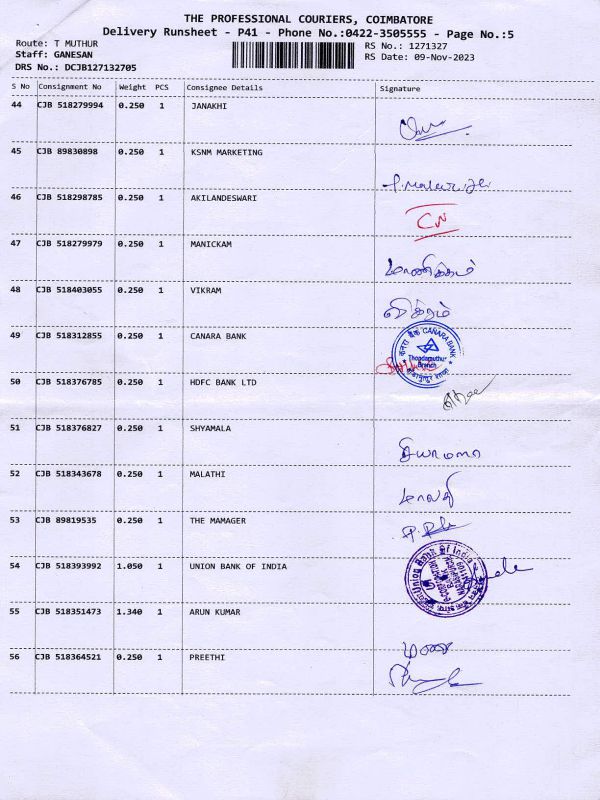 THE PROFESSIONAL COURIERS, COIMBATORE
Delivery Runsheet - P41 - Phone No.:0422-3505555 - Page No.:5
Route: T MUTHUR RS No.: 1271327
Staff: GANESAN RS Date: 09-Nov-2023
DRS No.: DCJB127132705
S No Consignment No Weight PCS Consignee Details Signature
44 CJB 518279994 0.250 1 JANAKHI
45 CJB 89830898 0.250 1 KSNM MARKETING
46 CJB 518298785 0.250 1 AKILANDESWARI
47 CJB 518279979 0.250 1 MANICKAM
மாணிக்கம்
48 CJB 518403055 0.250 1 VIKRAM
விக்ரம்
49 CJB 518312855 0.250 1 CANARA BANK
केनरा बैंक CANARA BANK
Thondamuthur
Branch
50 CJB 518376785 0.250 1 HDFC BANK LTD
51 CJB 518376827 0.250 1 SHYAMALA
சியாமளா
52 CJB 518343678 0.250 1 MALATHI
மாலதி
53 CJB 89819535 0.250 1 THE MAMAGER
54 CJB 518393992 1.050 1 UNION BANK OF INDIA
Union Bank Of India
55 CJB 518351473 1.340 1 ARUN KUMAR
56 CJB 518364521 0.250 1 PREETHI